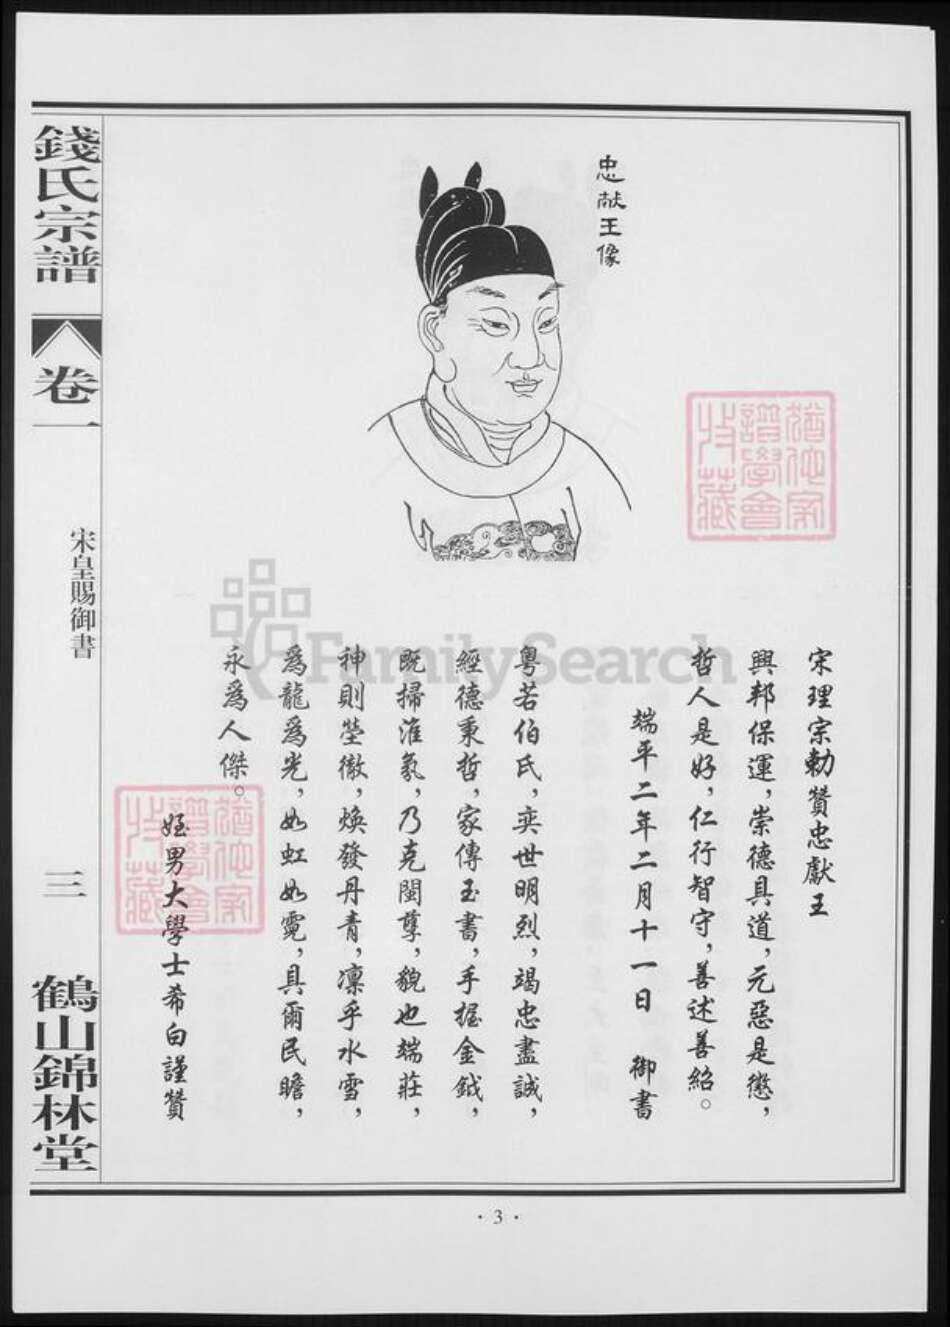 忠献王像
宋理宗勅贊忠獻王
興邦保運，崇德具道，元惡是懲，
哲人是好，仁行智守，善述善紹。
端平二年二月十一日　御書
粤若伯氏，奕世明烈，竭忠盡誠，
經德秉哲，家傳玉書，手握金鉞，
既掃淮氛，乃克閩孽，貌也端莊，
神則瑩徹，焕發丹青，凛乎水雪，
爲龍爲光，如虹如霓，具爾民瞻，
永爲人傑。
姪男大學士希白謹贊
錢氏宗譜
卷一
宋皇賜御書
三
鶴山錦林堂
·3·
猶他家
譜學會
收藏
猶他家
譜學會
收藏
FamilySearch